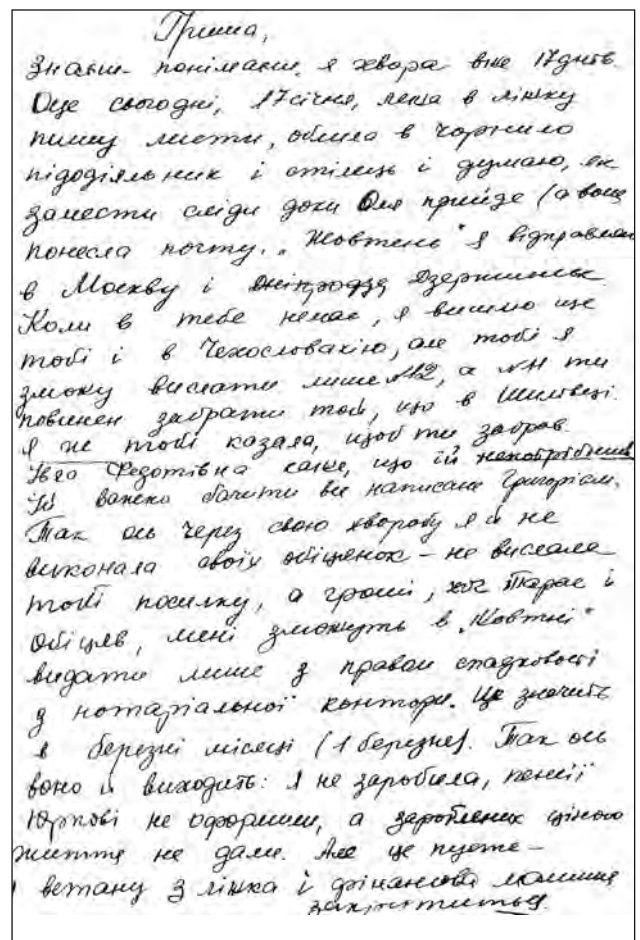 Гриша,
Знаєш-понімаєш, я хвора вже 17 днів.
Оце сьогодні, 17 січня, лежа в ліжку
пишу листи, облила в чорнило
підодіяльник і стілець і думаю, як
замести сліди доки Оля прийде (а вона
понесла почту. „Жовтень" я відправила
в Москву і Дзержинськ.
Коли в тебе немає, я вишлю ще
тобі і в Чехословакію, але тобі я
зможу вислати лише №12, а №11 ти
повинен забрати той, що в Шилівці.
Я ж тобі казала, щоб ти забрав.
Федотівна каже, що їй непотрібний
Їй важко бачити все написане Григорієм.
Так ось через свою хворобу я й не
виконала своїх обіцянок – не вислала
тобі посилку, а гроші, хоч Тарас і
обіцяв, мені зможуть в „Жовтні"
видати лише з правом спадковості
з нотаріальної контори. Це значить
в березні місяці (1 березня). Так ось
воно й виходить: я не заробила, пенсії
Юркові не оформили, а зароблених ціною
життя не дали. Але це пусте –
встану з ліжка і фінансова машина
закрутиться.